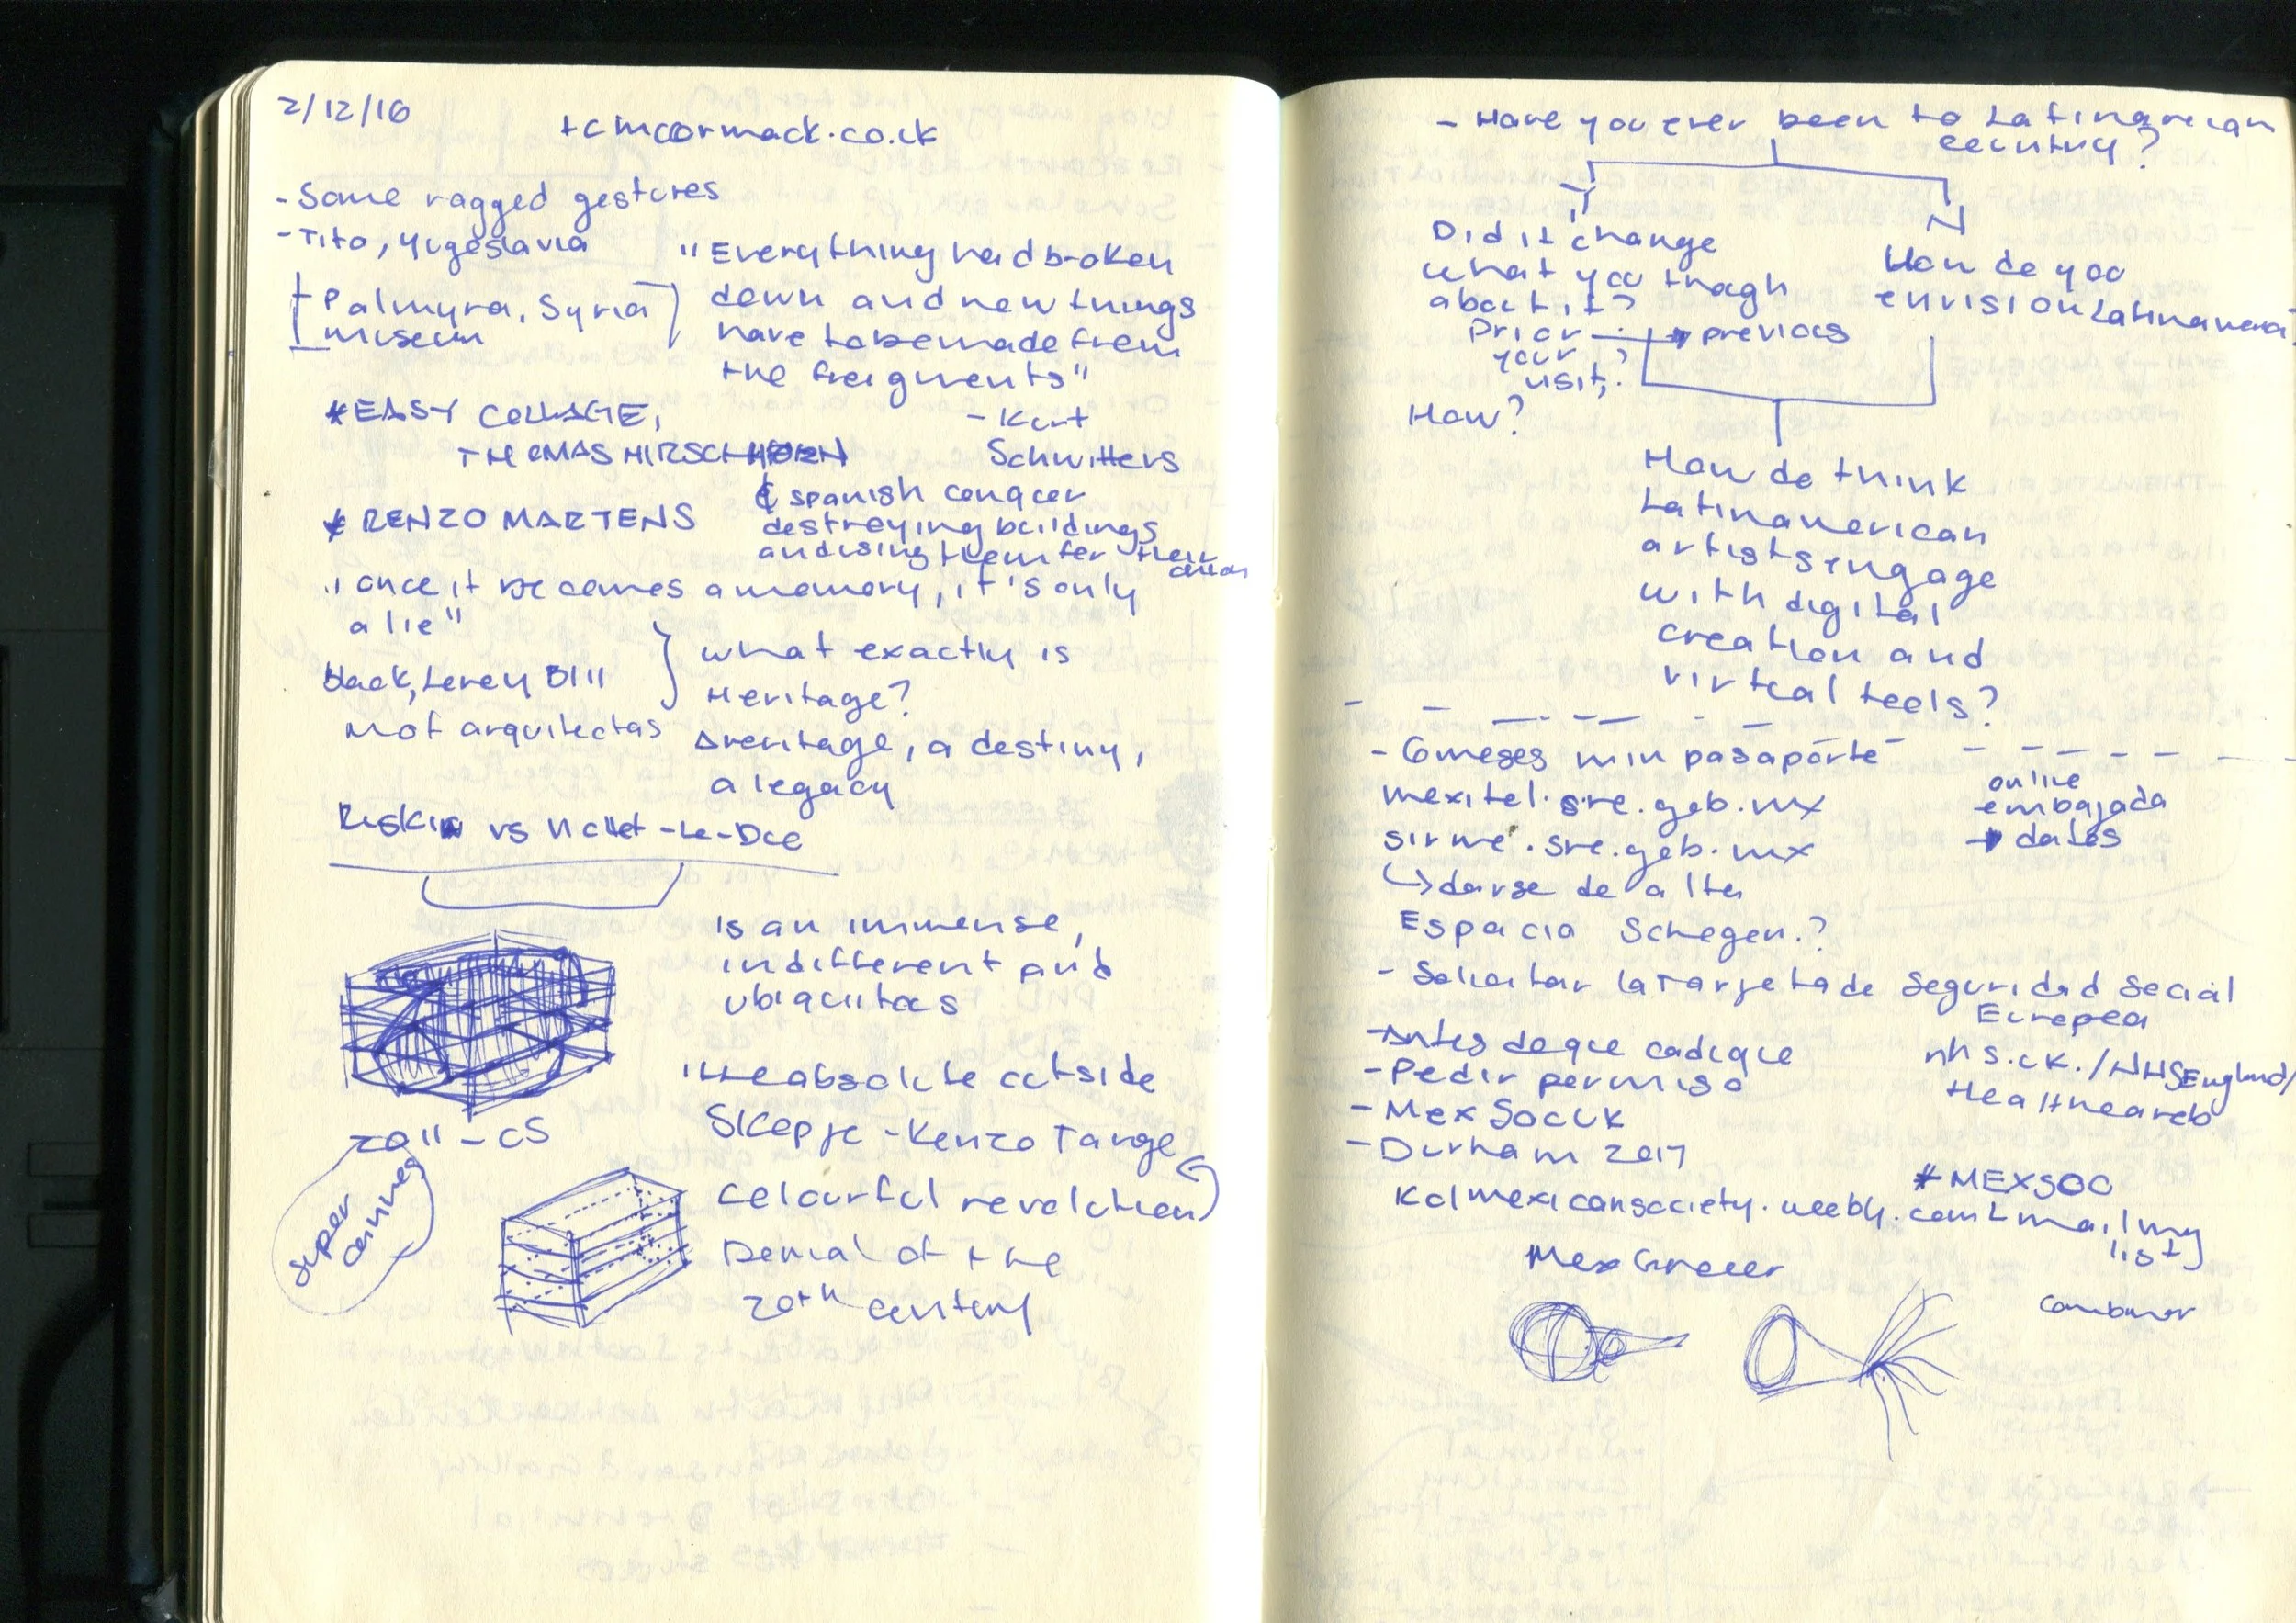 2/12/16
tcmccormack.co.uk
- Some ragged gestures
- Tito, Yugoslavia
Palmyra, Syria
museum
"Everything had broken
down and new things
have to be made from
the fragments"
- Kurt
Schwitters
* EASY COLLAGE,
THOMAS HIRSCHHORN
* RENZO MARTENS
¢ spanish conquer
destroying buildings
and using them for their
"once it becomes a memory, it's only
a lie"
Not arquitectas
what exactly is
Heritage?
a destiny,
a legacy
Ruskin vs Viollet-Le-Duc
is an immense,
indifferent and
ubiquitous
"the absolute outside
Skopje - Kenzo Tange
Colourful revolution
Denial of the
20th century
super
- Have you ever been to Latinamerican
country?
Y
N
Did it change
what you though
about it?
Prior → previous
your
visit?
How?
How do you
envision Latinamerica
How do think
Latinamerican
artists engage
with digital
creation and
virtual tools?
- 6 meses min pasaporte
mexitel.sre.gob.mx
sirme.sre.gob.mx
↳ darse de alta
online
embajada
→ dates
Espacio Schegen.?
- Solicitar la Tarjeta de Seguridad Social
Europea
→ Antes de que caduque
- Pedir permiso
nhs.uk./NHSEngland/
Healthcareab
- MexSocUK
- Durham 2017
#MEXSOC
Kclmexicansociety.weebly.com
mailing
list